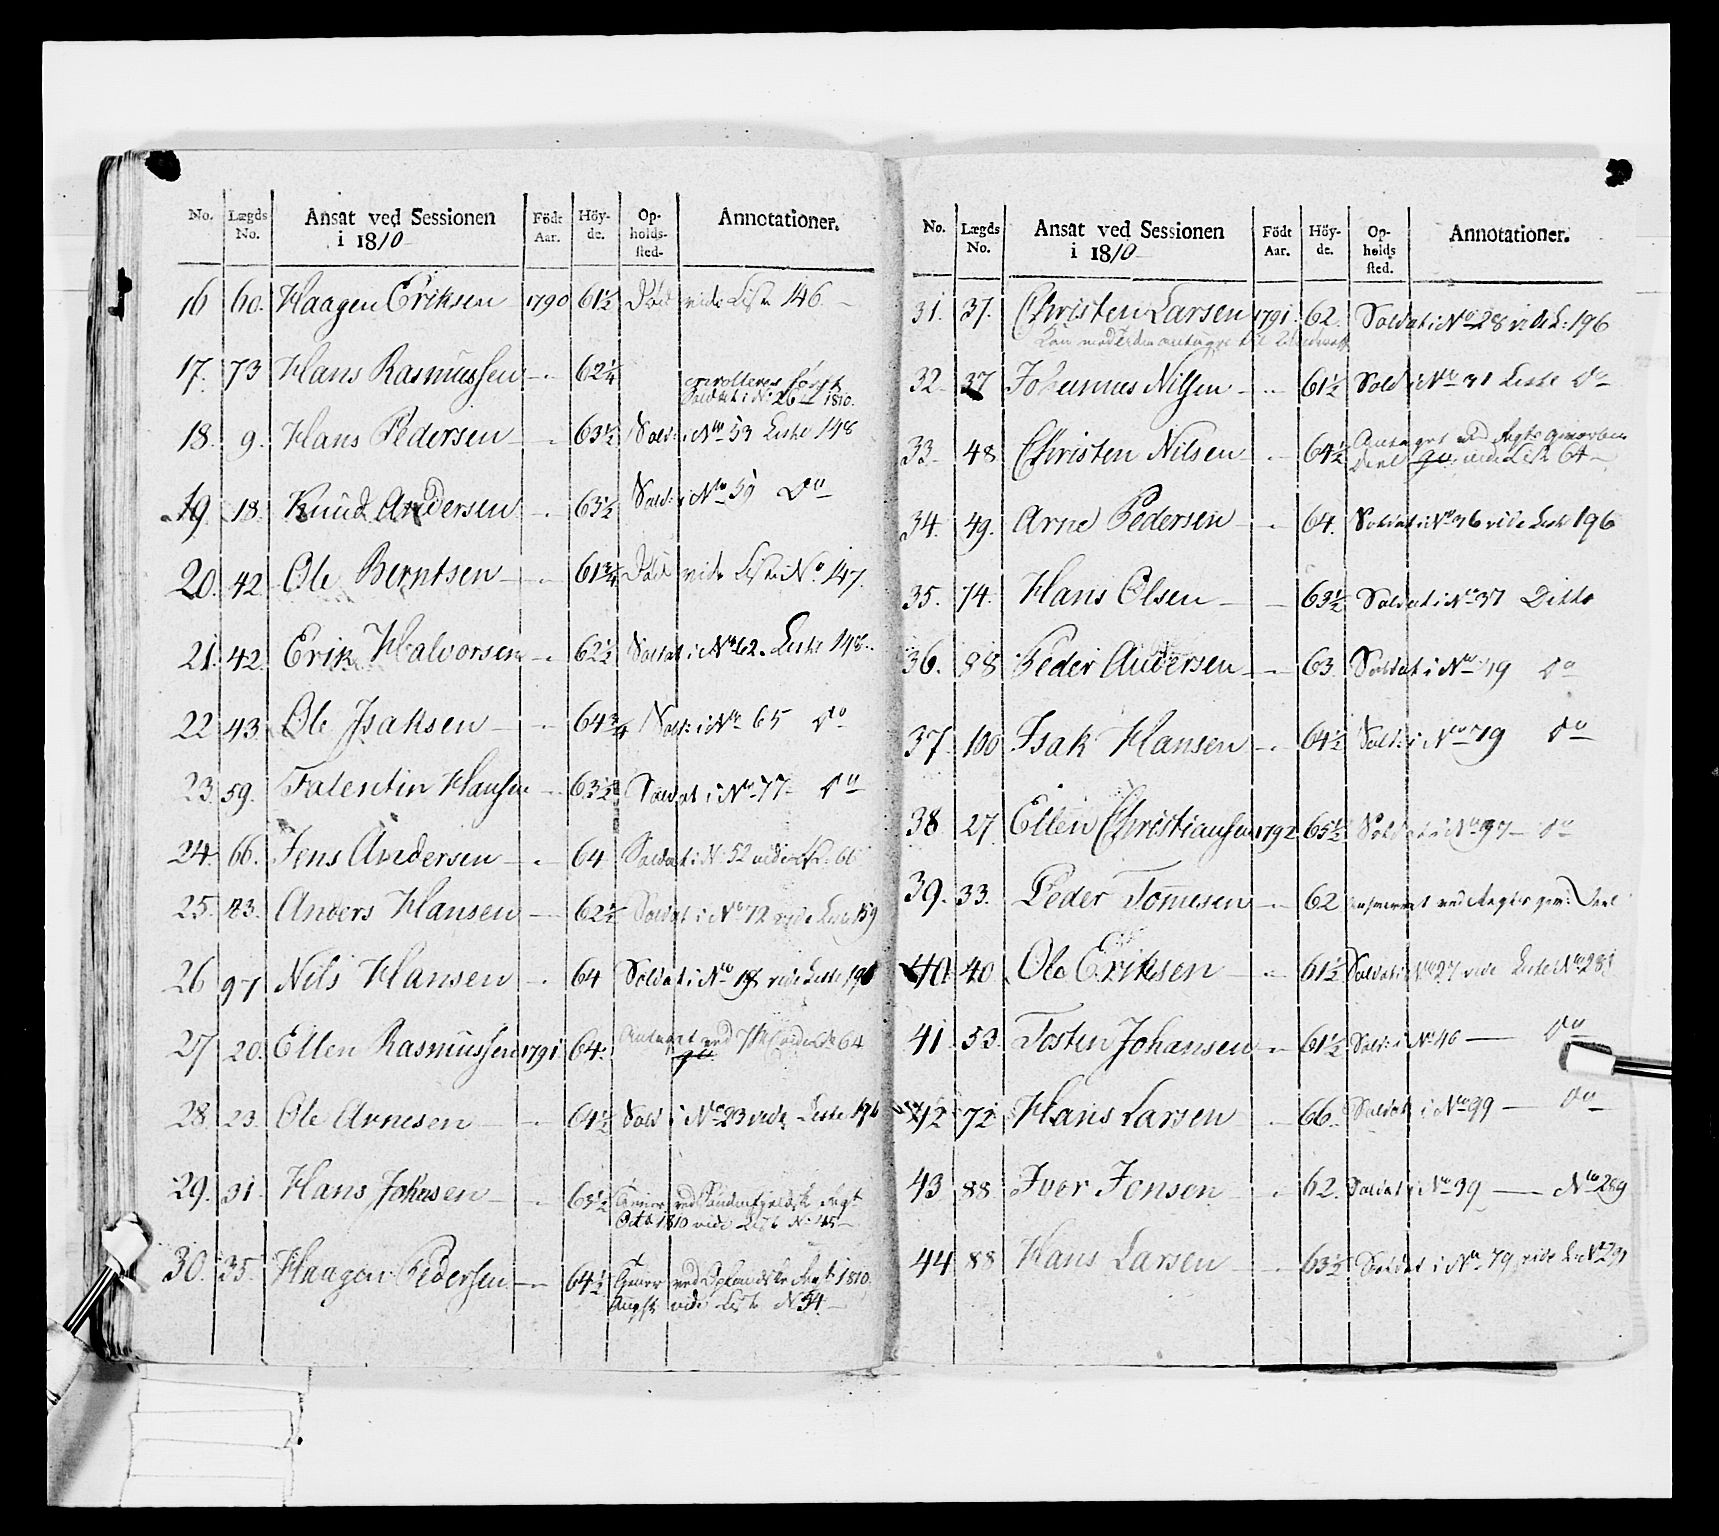 No. Lægds No. Ansat ved Sessionen i 1810 Födt Aar. Höy-de. Op-holds-sted. Annotationer.
16 60. Haagen Eriksen 1790 61½ Död vide Liste 146.
17. 73 Hans Rasmussen 62¼
Soldat i No 26 1810.
18. 9. Hans Pedersen 63½ Sold: i No 53 Liste 148
19. 18. Knud Andersen 63½ Sold: i No 59 Do
20. 42 Ole Berntsen 61¾ Död vide Liste No 147.
21. 42. Erik Halvorsen 62½ Soldat i No 62. Liste 148.
22 43. Ole Isaksen 64¾ Sold: i No 65 Do
23. 59. Falentin Hansen 63½ Soldat i No 77 Do
24. 66. Jens Andersen 64 Soldat i No 52 vide 66
25. 83. Anders Hansen 62½ Soldat i No 72 vide Liste 159
26 97 Nils Hansen 64 Soldat i No 18 vide Liste 196
27 20. Ellen Rasmussen 1791 64. Antaget ved vide 64
28. 23. Ole Arnesen 64½ Sold i No 23 vide Liste 196
29. 31. Hans Johnsen 63½ ved Söndenfieldske Regt
Octb 1810 vide Liste No 45
30. 35. Haagen Pedersen 64½ ved Oplandske Regt 1810
August vide Liste No 54
No. Lægds No. Ansat ved Sessionen i 1810 Födt Aar. Höy-de. Op-holds sted. Annotationer.
31. 37. Christen Larsen 1791. 62. Soldat i No 28 vide L: 196
32. 37 Johannes Nilsen 61½ Sold i No 31 Liste Do
33. 48 Christen Nilsen 64½ Antaget ved Regts gevorben
Deel vide Liste 64
34. 49. Arne Pedersen 64. Soldat i No 36 vide Liste 196
35. 74. Hans Olsen 63½ Soldat i No 37 Ditto
36. 88 Peder Andersen 63 Soldat i No 79 Do
37. 100 Isak Hansen 64½ Sold: i No 79 Do
38 27 Ellen Christiansen 1792 65½ Soldat i No 97 Do
39. 33. Peder Tomesen 62 ved Regts gev: Deel
40 40 Ole Eriksen 61½ Soldat i No 27 vide Liste No 281
41. 53. Tosten Johansen 61½ Sold: i No 46 Do
42 72 Hans Larsen 66. Soldat i No 99 Do
43 88. Iver Jensen 62. Soldat i No 39 No 289
44 88 Hans Larsen 63½ Soldat i No 79 vide L: No 291